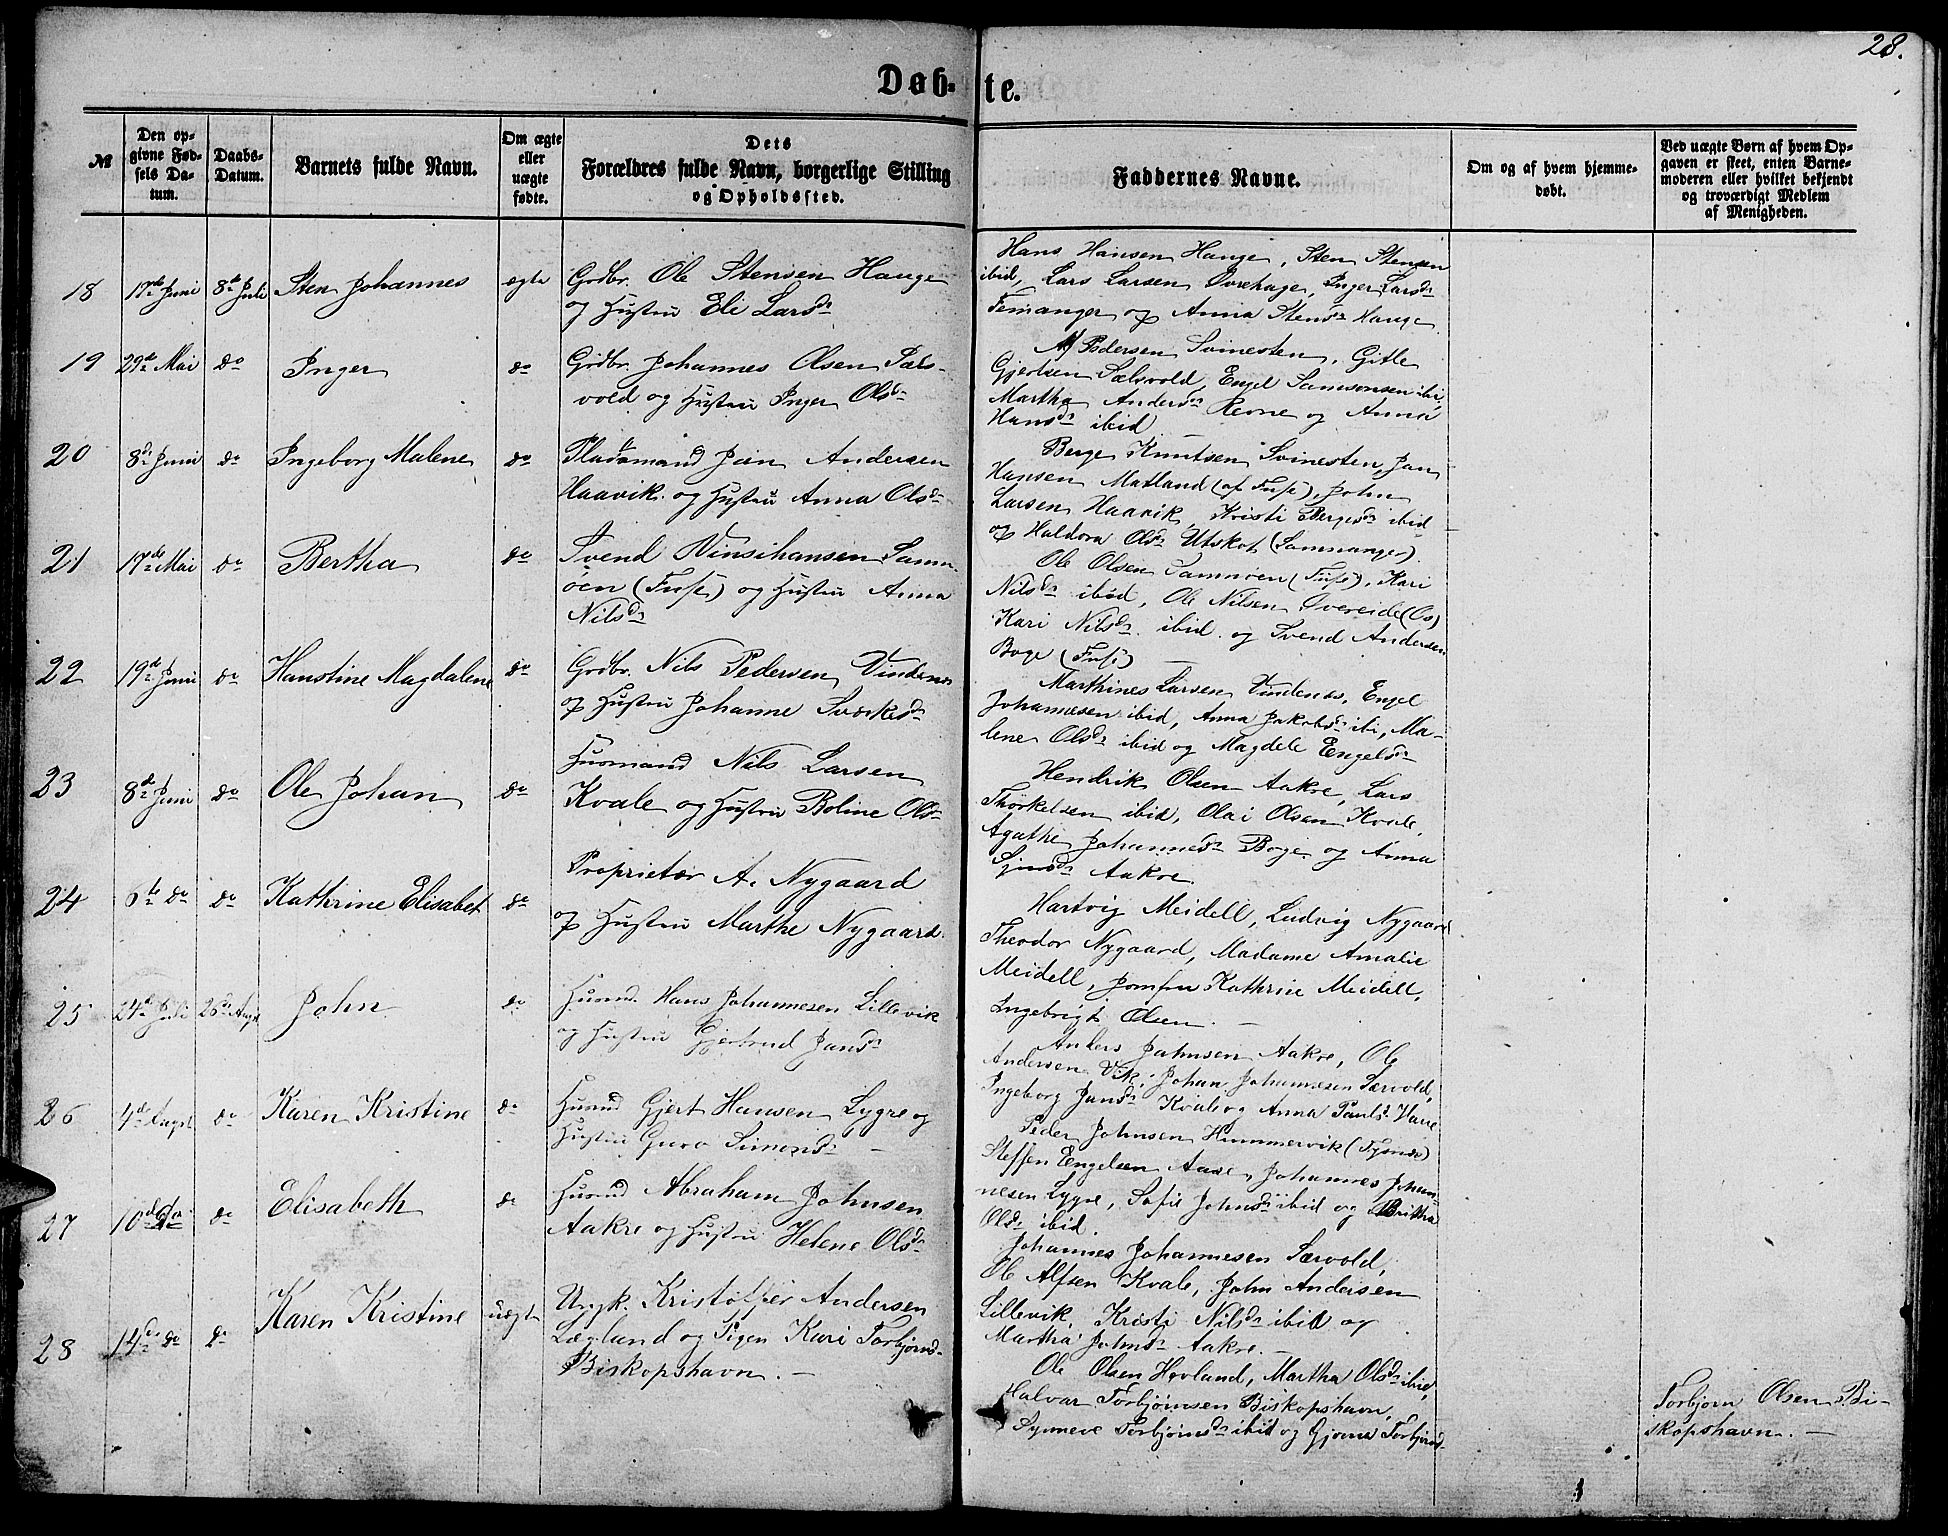 28.
Døb- te.
№
Den op-
givne Fød-
sels Da-
tum.
Daabs-
Datum.
Barnets fulde Navn.
Om ægte
eller
uægte
fødte.
Dets
Forældres fulde Navn, borgerlige Stilling
og Opholdssted.
Faddernes Navne.
Om og af hvem hjemme-
døbt.
Ved uægte Børn af hvem Op-
gaven er skeet, enten Barne-
moderen eller hvilket bekjendt
og troværdigt Medlem
af Menigheden.
18 17de Juni 8de Juli Sten Johannes ægte Grdbr. Ole Stensen Hauge
og Hustru Eli Larsdr
Hans Hansen Hauge, Sten Stensen
ibid, Lars Larsen Øvrehage, Inger Larsdr
Femanger og Anna Stensdr Hauge
19 29de Mai do Inger do Grdbr. Johannes Olsen Sæls-
vold og Hustru Inger Olsdr
Pedersen Svinesten, Gitle
Gjertsen Sælsvold, Engel Samsonsen ibi,
Martha Andersdr Revne og Anna
Hansdr ibid
20 8de Juni do Ingeborg Malene do Pladsmand Jan Andersen
Haavik og Hustru Anna Olsdr
Berge Knutsen Svinesten, Jan
Hansen Matland (af Fuse), John
Larsen Haavik, Kristi Bergesdr ibid
og Haldora Olsdr Utskot (Sammanger)
21 17de Mai do Bertha do Svend Vinsihansen Samn-
øen (Fuse) og Hustru Anna
Nilsdr
Ole Olsen Samnøen (Fuse), Kari
Nilsdr ibid, Ole Nilsen Øvereide (Os)
Kari Nilsdr ibid og Svend Andersen
Boge (Fuse)
22 19de Juni do Hanstine Magdalene do Grdbr. Nils Pedersen Vindenes
og Hustru Johanne Sværkesdr
Marthines Larsen Vindenes, Engel
Johannesen ibid, Anna Jakobsdr ibi, Ma-
lene Olsdr ibid og Magdele Engelsdr
23 8de Juni do Ole Johan do Husmand Nils Larsen
Kvale og Hustru Boline Olsdr
Hendrik Olsen Aakre, Lars
Thorkelsen ibid, Olai Olsen Kvale,
Agathe Johannesdr Boge og Anna
Sjursdr Aakre
24 6te do do Kathrine Elisabet do Proprietær A. Nygaard
og Hustru Marthe Nygaard
Hartvig Meidell, Ludvig Nygaard
Theodor Nygaard, Madame Amalie
Meidell, Jomfru Kathrine Meidell,
Ingebrigt Olsen. —
25 24de Juli 26de Augst John do Husmd. Hans Johannesen Lillevik
og Hustru Gjertrud Jansdr
Anders Jahnsen Aakre, Ole
Andersen Vik, Johan Johannesen Særvold,
Ingeborg Jansdr Kvale og Anna Paulsdr
26 4de Augst do Karen Kristine do Husmd Gjert Hansen Lygre og
Hustru Guro Simonsdr —
Peder Johnsen Hummervik (Tysnes)
Steffen Engelsen Aase, Johannes Johan-
nesen Lygre, Sofie Johnsdr ibid og Britha
Olsdr ibid.
27 10de do do Elisabeth do Husmd Abraham Johnsen
Aakre og Hustru Helene Olsdr
Johannes Johannesen Særvold,
Ole Alfsen Kvale, John Andersen
Lillevik, Kristi Nilsdr ibid og
Martha Johnsdr Aakre. —
28 14de do do Karen Kristine uægte Ungk. Kristoffer Andersen
Lægland og Pigen Kari Torbjørnsdr
Biskopshavn. —
Ole Olsen Hovland, Martha Olsdr ibid,
Halvar Torbjørnsen Biskopshavn,
Synneve Torbjørnsdr ibid og Gjorine Torbjørnsdr
Torbjørn Olsen Bi-
skopshavn. —